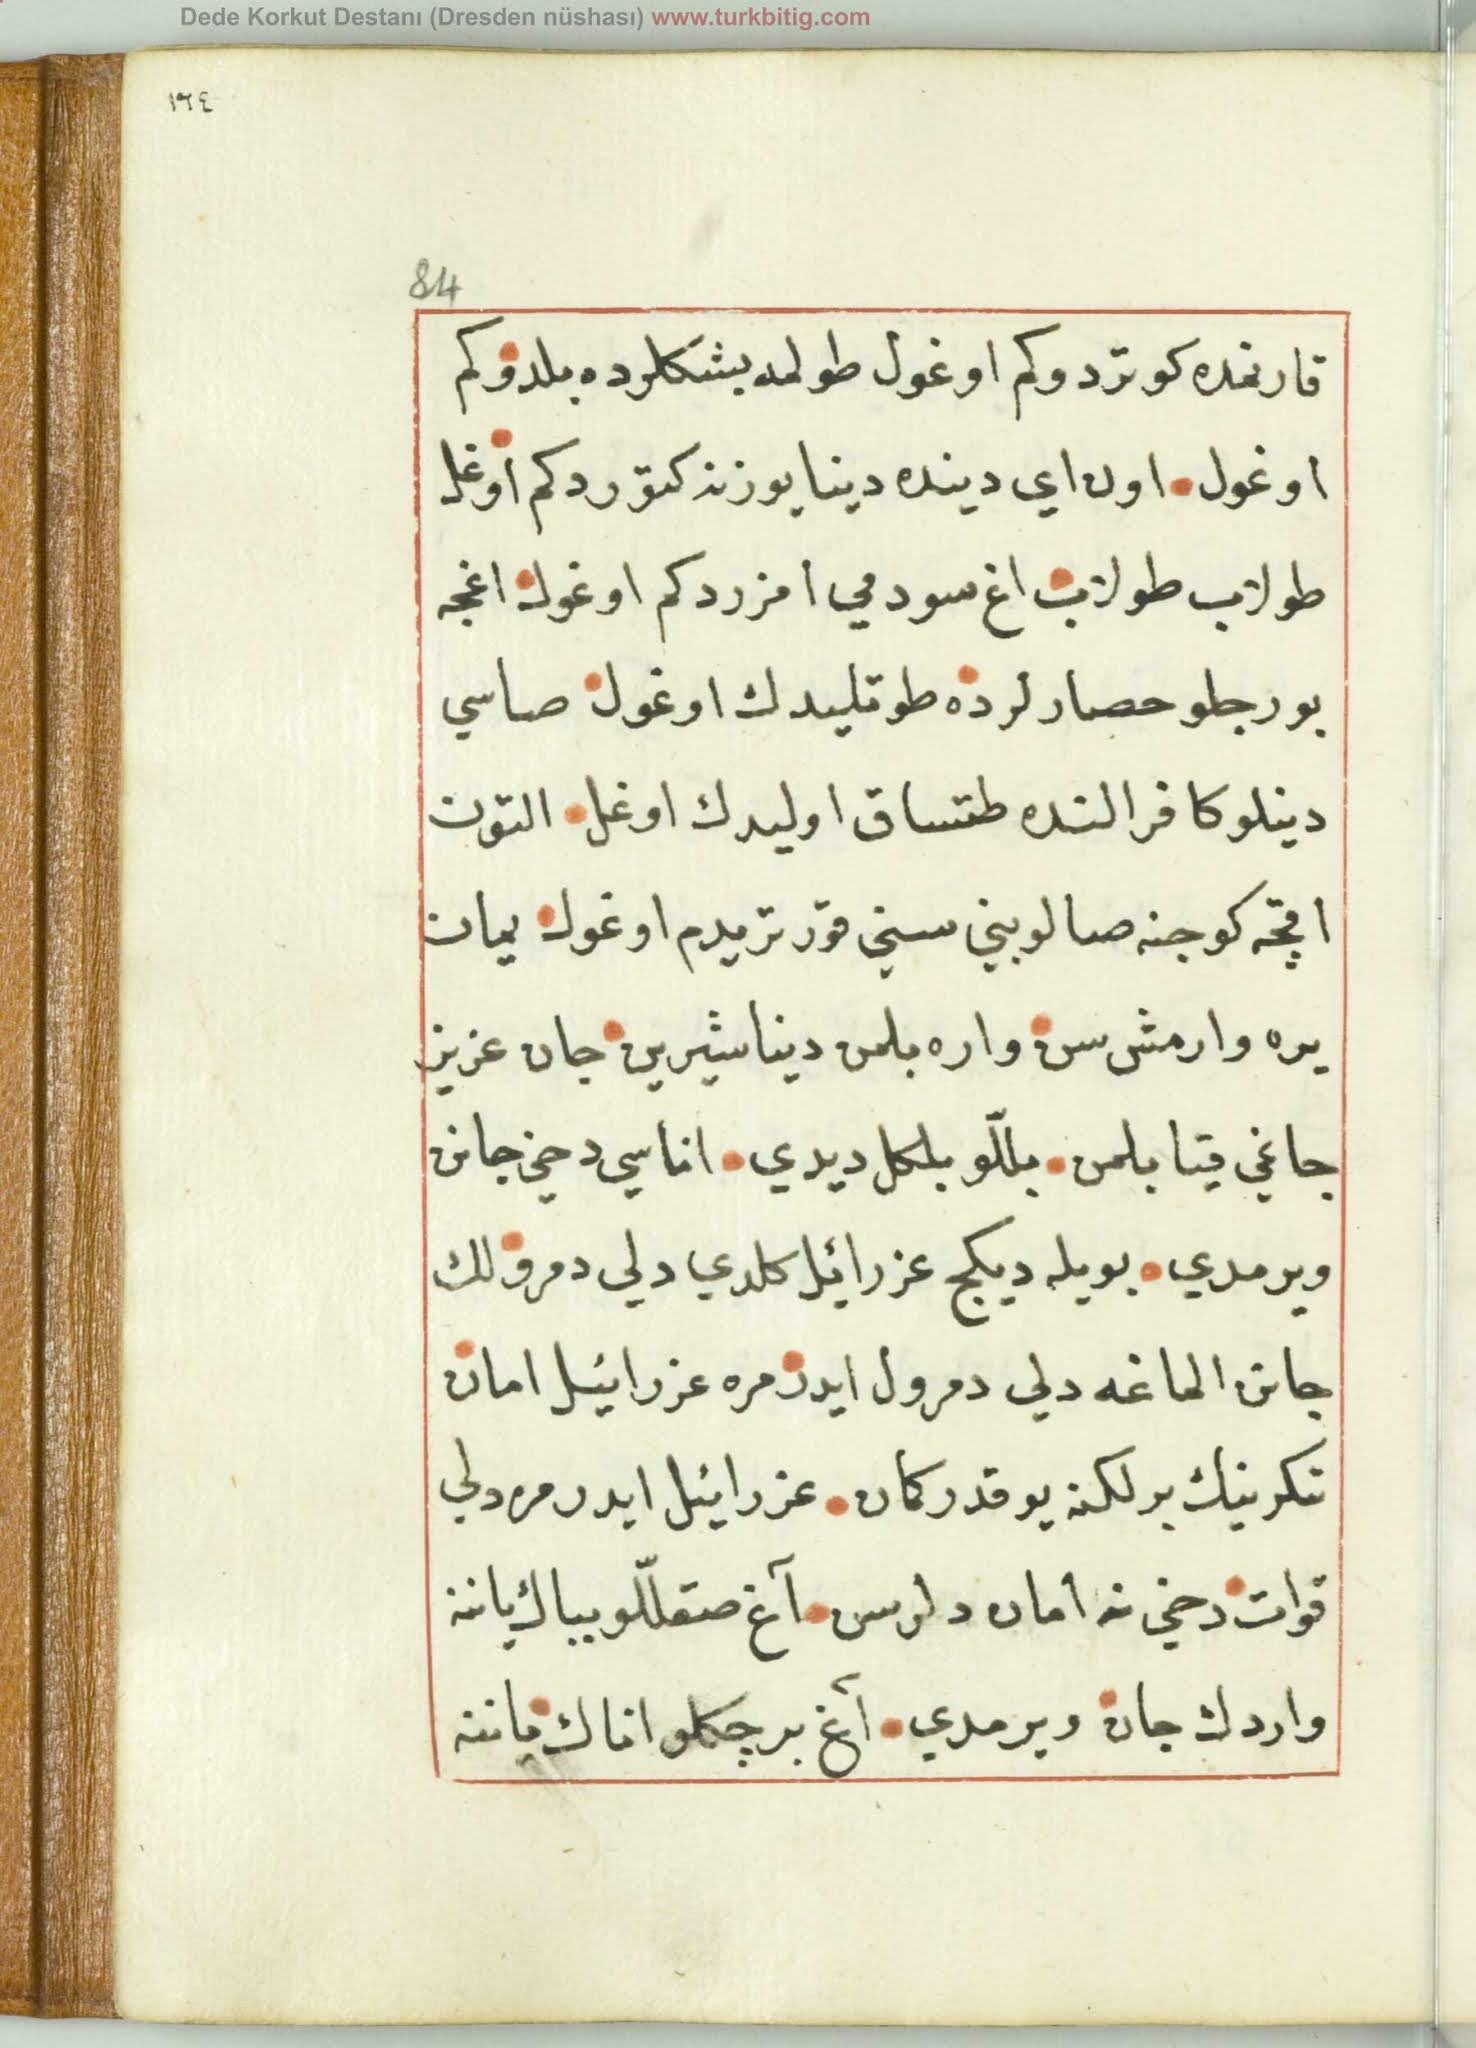 Dede Korkut Destanı (Dresden nüshası) www.turkbitig.com
١٦٤
84
قارنمده كوتردوكم اوغول طولمه بشكلرده بلدوكم
اوغول اون اي دينده دينا يوزنه كتوردكم اوغل
طولاب طولاب اغ سودمي امزردكم اوغول اغجه
بورجلو حصارلرده طوتليدك اوغول صاسي
دينلو كافر النده طتساق اوليدك اوغل التون
اقچه كوجنه صالوبني سني قورترميدم اوغول يمان
يره وارمش سن واره بلمن دينا شيرين جان عزيز
جاغي قيا بلمن بللّو بلكل ديدي اناسي دخي جانن
ويرمدي بويله ديكج عزرائيل كلدي دلي دمرولك
جانن الماغه دلي دمرول ايدر مره عزرائيل امان
تنكرينك برلكنه يوقدر كمان عزرائيل ايدر مره دلي
قوات دخي نه امان دلرسن آغ صقللّو بباك ياننه
واردك جان ويرمدي آغ برچكلو اناك ياننه